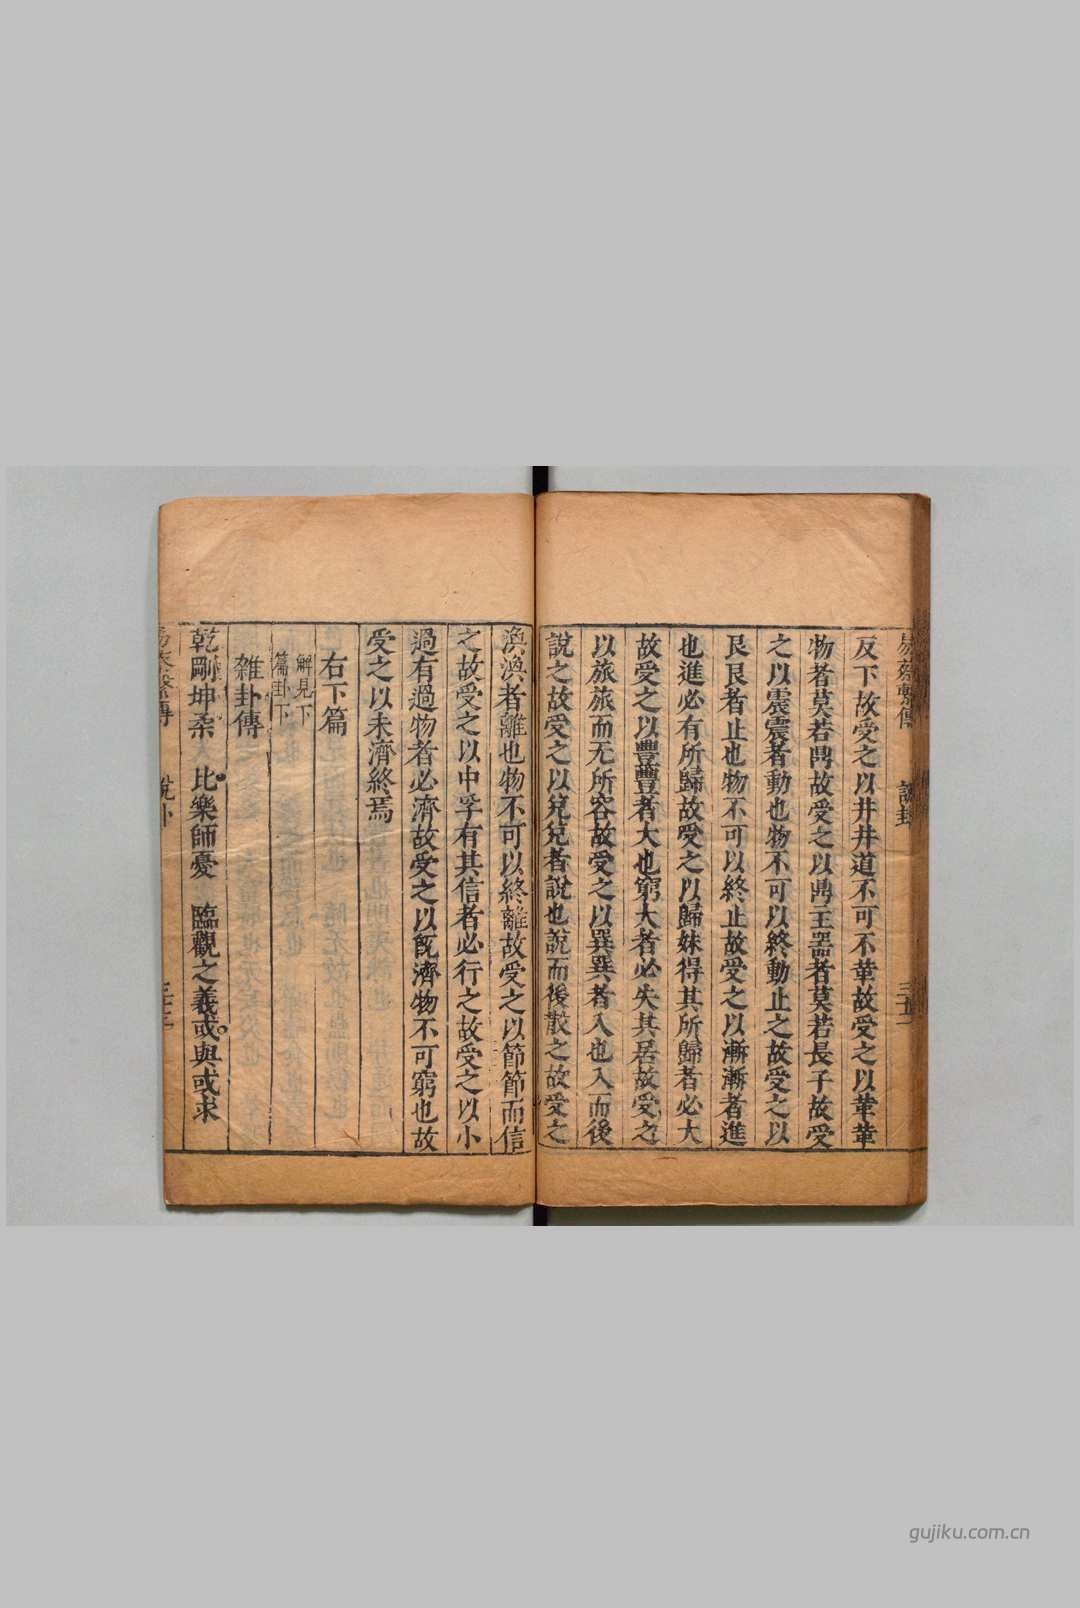 反下故受之以井井道不可不革故受之以革革
物者莫若鼎故受之以鼎主器者莫若長子故受
之以震震者動也物不可以終動止之故受之以
艮艮者止也物不可以終止故受之以漸漸者進
也進必有所歸故受之以歸妹得其所歸者必大
故受之以豐豐者大也窮大者必失其居故受之
以旅旅而无所容故受之以巽巽者入也入而後
說之故受之以兌兌者說也說而後散之故受之
渙渙者離也物不可以終離故受之以節節而信
之故受之以中孚有其信者必行之故受之以小
過有過物者必濟故受之以旣濟物不可窮也故
受之以未濟終焉
右下篇
解見下
篇卦下
雜卦傳
乾剛坤柔 比樂師憂 臨觀之義或與或求
gujiku.com.cn